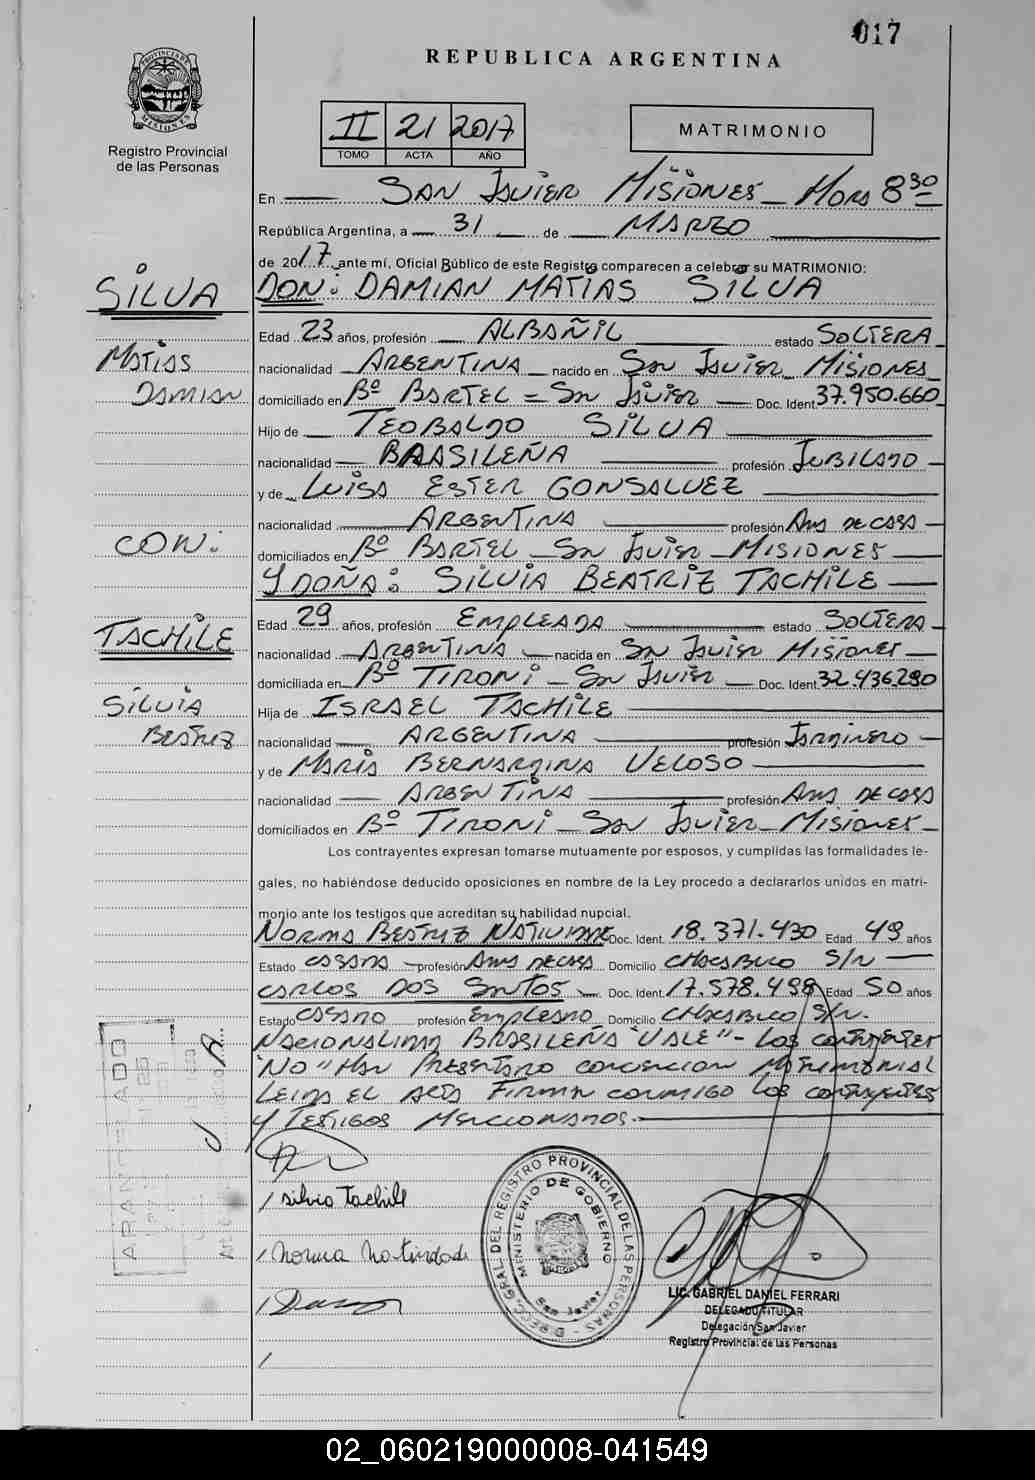 017
REPUBLICA ARGENTINA
PROVINCIA DE MISIONES
Registro Provincial
de las Personas
II 21 2017
TOMO ACTA AÑO
MATRIMONIO
En SAN JAVIER MISIONES - HORA 8 30
República Argentina, a 31 de MARZO
de 2017 ante mí, Oficial Público de este Registro comparecen a celebrar su MATRIMONIO:
SILVA
DON: DAMIAN MATIAS SILVA
Edad 23 años, profesión ALBAÑIL estado SOLTERA
MATIAS
nacionalidad ARGENTINA nacido en SAN JAVIER MISIONES
DAMIAN
domiciliado en Bº BARTEL = SAN JAVIER Doc. Ident. 37.950.660
Hijo de TEOBALDO SILVA
nacionalidad BRASILEÑA profesión JUBILADO
y de LUISA ESTER GONSALVEZ
nacionalidad ARGENTINA profesión AMA DE CASA
CON:
domiciliados en Bº BARTEL - SAN JAVIER - MISIONES
Y DOÑA: SILVIA BEATRIZ TACHILE
Edad 29 años, profesión EMPLEADA estado SOLTERA
TACHILE
nacionalidad ARGENTINA nacida en SAN JAVIER MISIONES
domiciliada en Bº TIRONI - SAN JAVIER Doc. Ident. 32.436.290
SILVIA
Hija de ISRAEL TACHILE
BEATRIZ
nacionalidad ARGENTINA profesión JARDINERO
y de MARIA BERNARDINA VELOSO
nacionalidad ARGENTINA profesión AMA DE CASA
domiciliados en Bº TIRONI - SAN JAVIER - MISIONES
Los contrayentes expresan tomarse mutuamente por esposos, y cumplidas las formalidades le-
gales, no habiéndose deducido oposiciones en nombre de la Ley procedo a declararlos unidos en matri-
monio ante los testigos que acreditan su habilidad nupcial.
NORMA BEATRIZ Doc. Ident. 18.371.430 Edad 49 años
Estado CASADA profesión AMA DE CASA Domicilio CHACABUCO S/N
CARLOS DOS SANTOS Doc. Ident. 17.578.498 Edad 50 años
Estado CASADO profesión EMPLEADO Domicilio CHACABUCO S/N.
NACIONALIDAD BRASILEÑA "VALE" - LOS CONTRAYENTES
"NO" HAN PRESENTADO CONVENCION MATRIMONIAL
LEIDA EL ACTA FIRMAN CONMIGO LOS CONTRAYENTES
Y TESTIGOS MENCIONADOS.
ARANCELADO
silvia Tachile
Norma Natividade
DIRECC. GRAL DEL REGISTRO PROVINCIAL DE LAS PERSONAS
MINISTERIO DE GOBIERNO
San Javier
LIC. GABRIEL DANIEL FERRARI
DELEGADO TITULAR
Delegación San Javier
Registro Provincial de las Personas
02_060219000008-041549